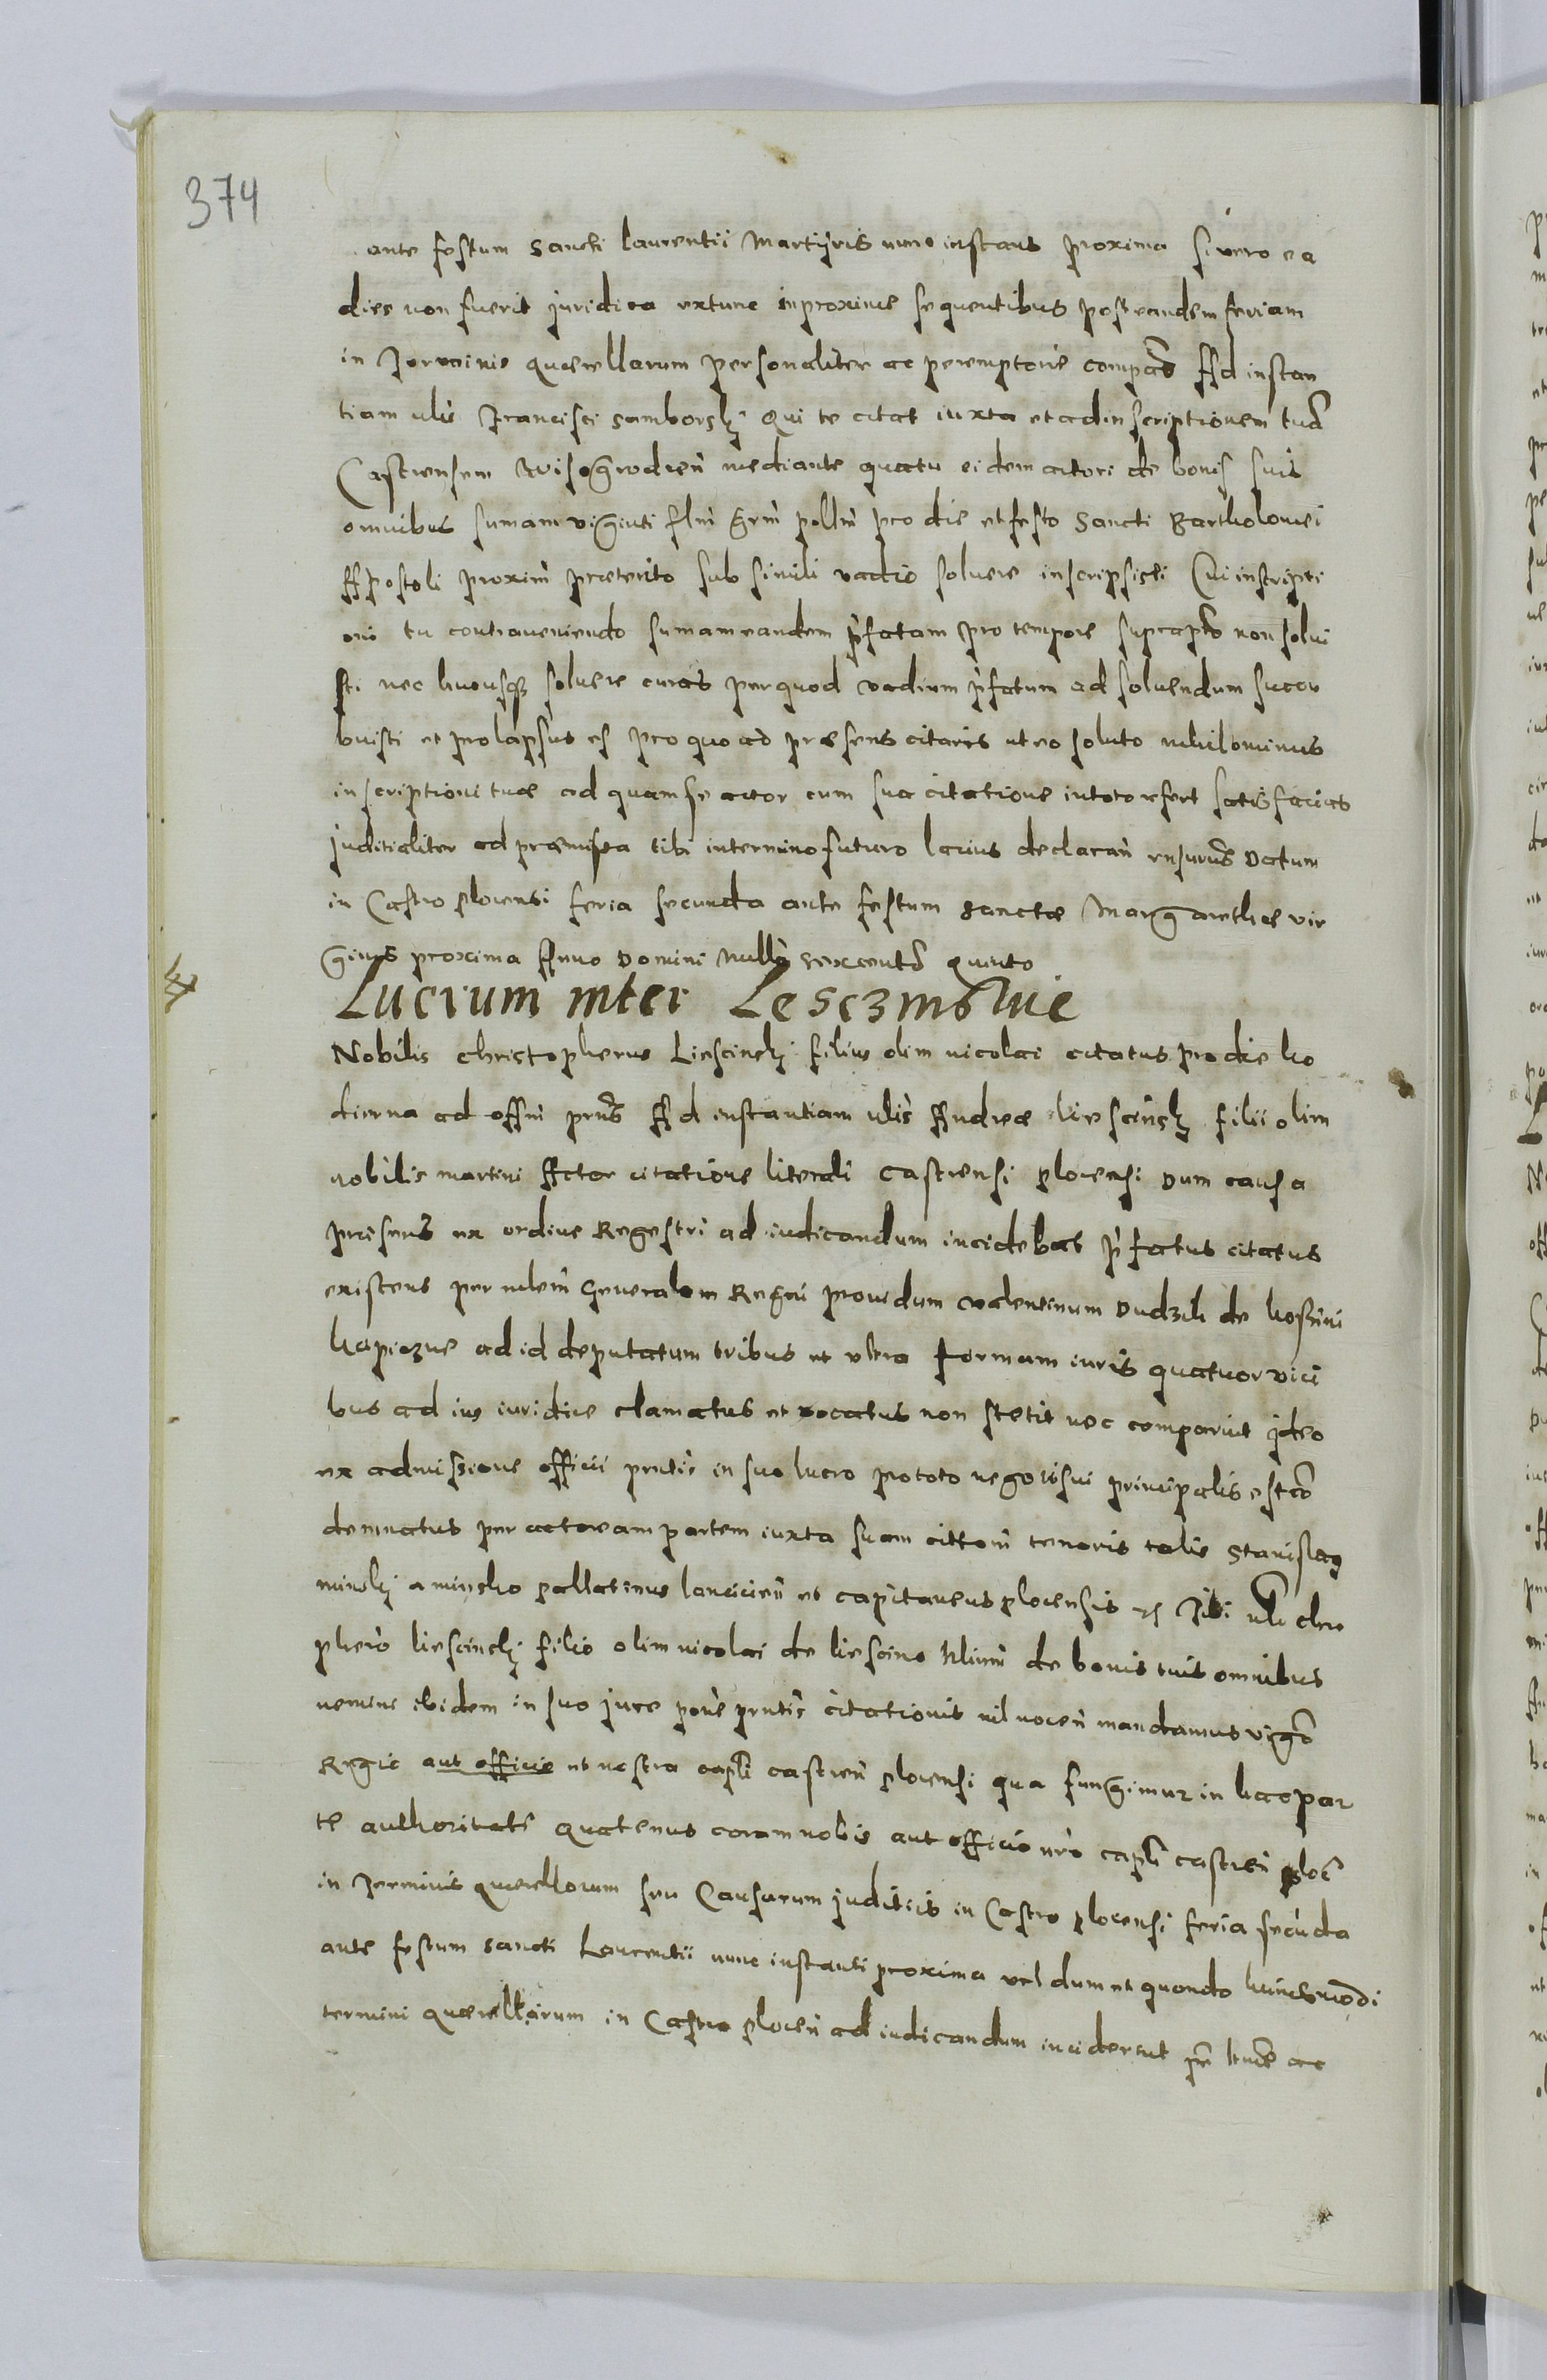 374
ante festum Sancti laurentii Martijris nunc instans proxima si vero ea
dies non fuerit juridica extunc in proxime sequentibus post eandem feriam
in Terminis quaerellarum personaliter ac peremptorie compās Ad instan
tiam nlis Francisci Samborskj Qui te citat iuxta et ad inscriptionem tuā
Castrensem Wisogrodien mediante qua tu eidem actori de bonis suis
omnibus sumam viginti flin grm pollin pro die et festo Sancti Bartholomei
Apostoli proxim praeterito sub simili vadio soluere inscripsisti Cui inscripti
oni tu contraueniendo sumam eandem pfatam pro tempore suprapto non solui
sti nec hucusq soluere curas per quod vadium pfatum ad soluendum succu
buisti et prolapsus es pro quo ad praesens citaris ut eo soluto nihilominus
inscriptioni tuae ad quam se actor cum sua citatione in toto refert satisfacias
juditialiter ad praemissa tibi in termino futuro lacius declaran rnsurus Datum
in Castro plocensi feria secunda ante festum Sanctae Margarethae vir
ginis proxima Anno Domini Mille sexcento quinto
Lucrum inter Lescznskie
Nobilis Christopherus Liescinskj filius olim nicolai citatus pro die ho
dierna ad offm prns Ad instantiam nlis Andreae liescinskj filii olim
nobilis martini Actor citatione literali castrensi plocensi Dum causa
praesens ex ordine Regestri ad iudicandum incidebat pfatus citatus
existens per mlem Generalem Regni prouidum valentinum Dudzik de kossini
ad id deputatum tribus et vltra formam iuris quatuor vici
bus ad ius iuridice clamatus et vocatus non stetit nec comparuit ideo
ex admissione officii prntis in suo lucro pro toto negotii sui principalis est cō
demnatus per actoream partem iuxta suam citton tenoris talis Stanislaus
minskj a minsko pallatinus lancicien et capitaneus plocensis Tibi nli chro
phero liescinskj filio olim nicolai de liescino de bonis tuis omnibus
nemini ibidem in suo jure prntis citationis nil nocen mandamus vigo
Regie aut officie et nostra capli castren plocensi qua fungimur in hac par
te authoritate quatenus coram nobis aut officio nro capli castren ploc
in Terminis quaerellarum seu Causarum juditiis in Castro plocensi feria secuda
ante festum Sancti Laurentii nunc instanti proxima vel dum et quando huiusmodi
termini quaerellarum in Castro plocen ad iudicandum inciderint ac